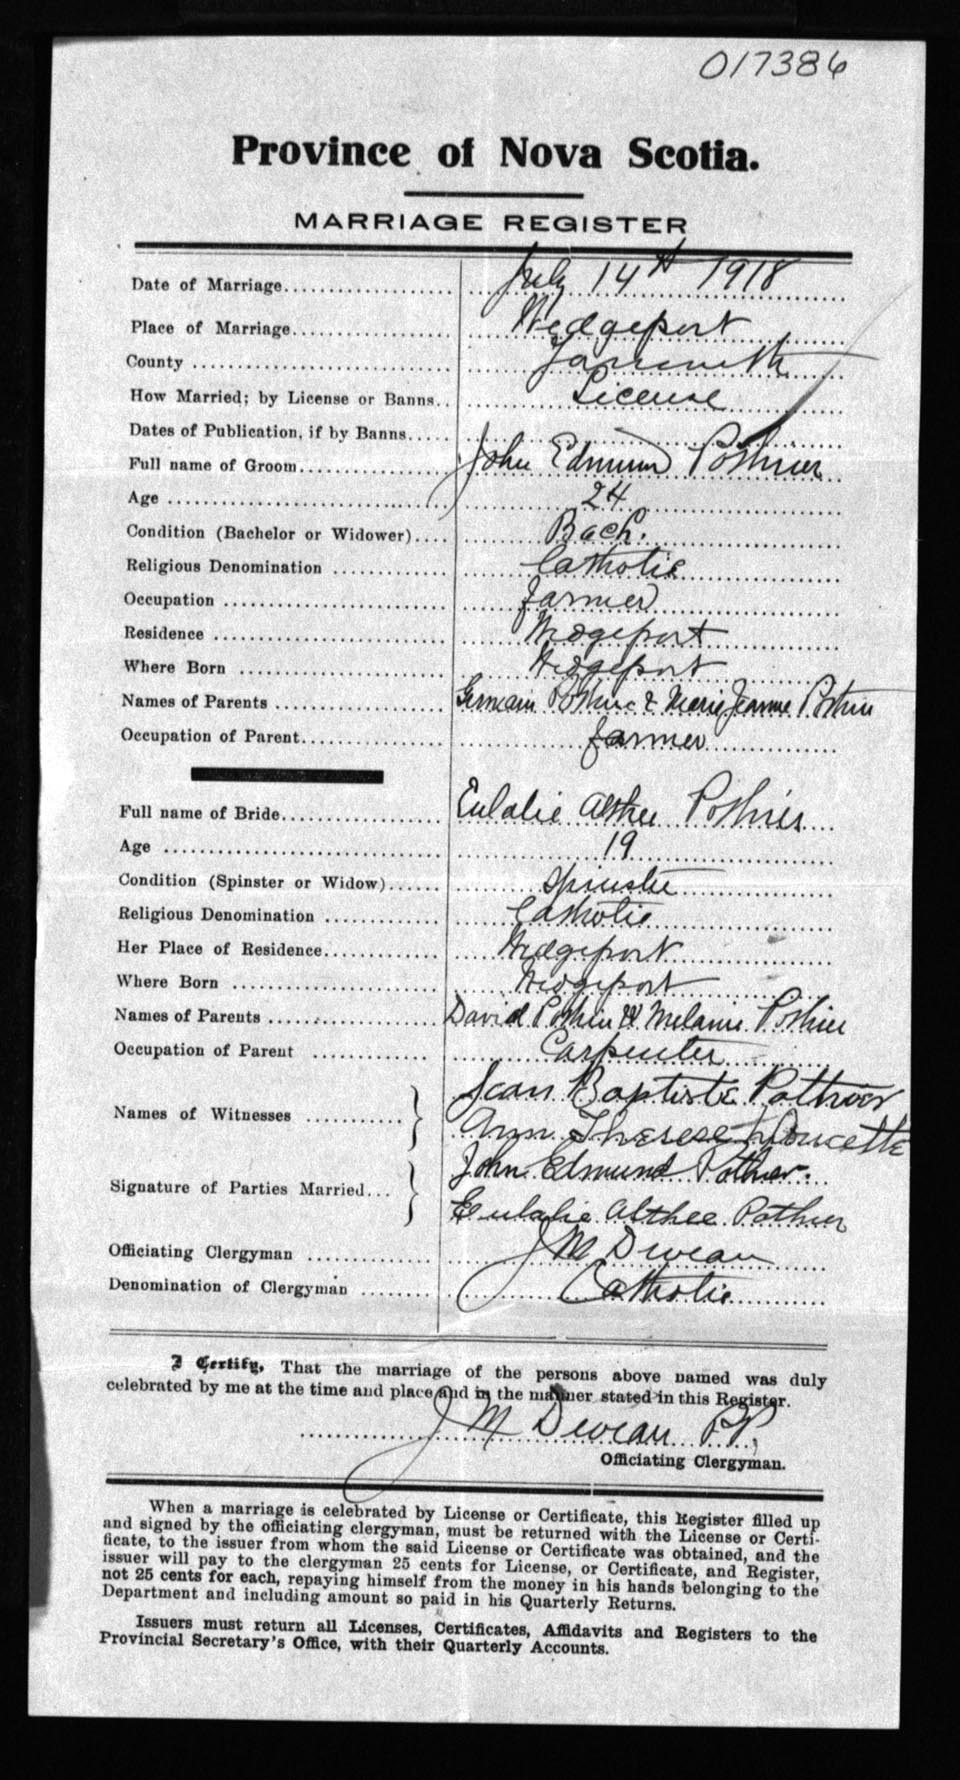 017386
Province of Nova Scotia.
MARRIAGE REGISTER
Date of Marriage July 14th 1918
Place of Marriage Wedgeport
County Yarmouth
How Married; by License or Banns License
Dates of Publication, if by Banns
Full name of Groom John Edmund Pothier
Age 24
Condition (Bachelor or Widower) Bach.
Religious Denomination Catholic
Occupation farmer
Residence Wedgeport
Where Born Wedgeport
Names of Parents Germain Pothier & Marie Jeanne Pothier
Occupation of Parent farmer
Full name of Bride Eulalie Althee Pothier
Age 19
Condition (Spinster or Widow) Spinster
Religious Denomination Catholic
Her Place of Residence Wedgeport
Where Born Wedgeport
Names of Parents David Pothier & Melanie Pothier
Occupation of Parent Carpenter
Names of Witnesses Jean Baptiste Pothier
Ann Therese Doucette
Signature of Parties Married John Edmund Pothier.
Eulalie Althee Pothier
Officiating Clergyman J M
Denomination of Clergyman Catholic
I Certify, That the marriage of the persons above named was duly
celebrated by me at the time and place and in the manner stated in this Register.
J M P.P.
Officiating Clergyman.
When a marriage is celebrated by License or Certificate, this Register filled up
and signed by the officiating clergyman, must be returned with the License or Certi-
ficate, to the issuer from whom the said License or Certificate was obtained, and the
issuer will pay to the clergyman 25 cents for License, or Certificate, and Register,
not 25 cents for each, repaying himself from the money in his hands belonging to the
Department and including amount so paid in his Quarterly Returns.
Issuers must return all Licenses, Certificates, Affidavits and Registers to the
Provincial Secretary's Office, with their Quarterly Accounts.